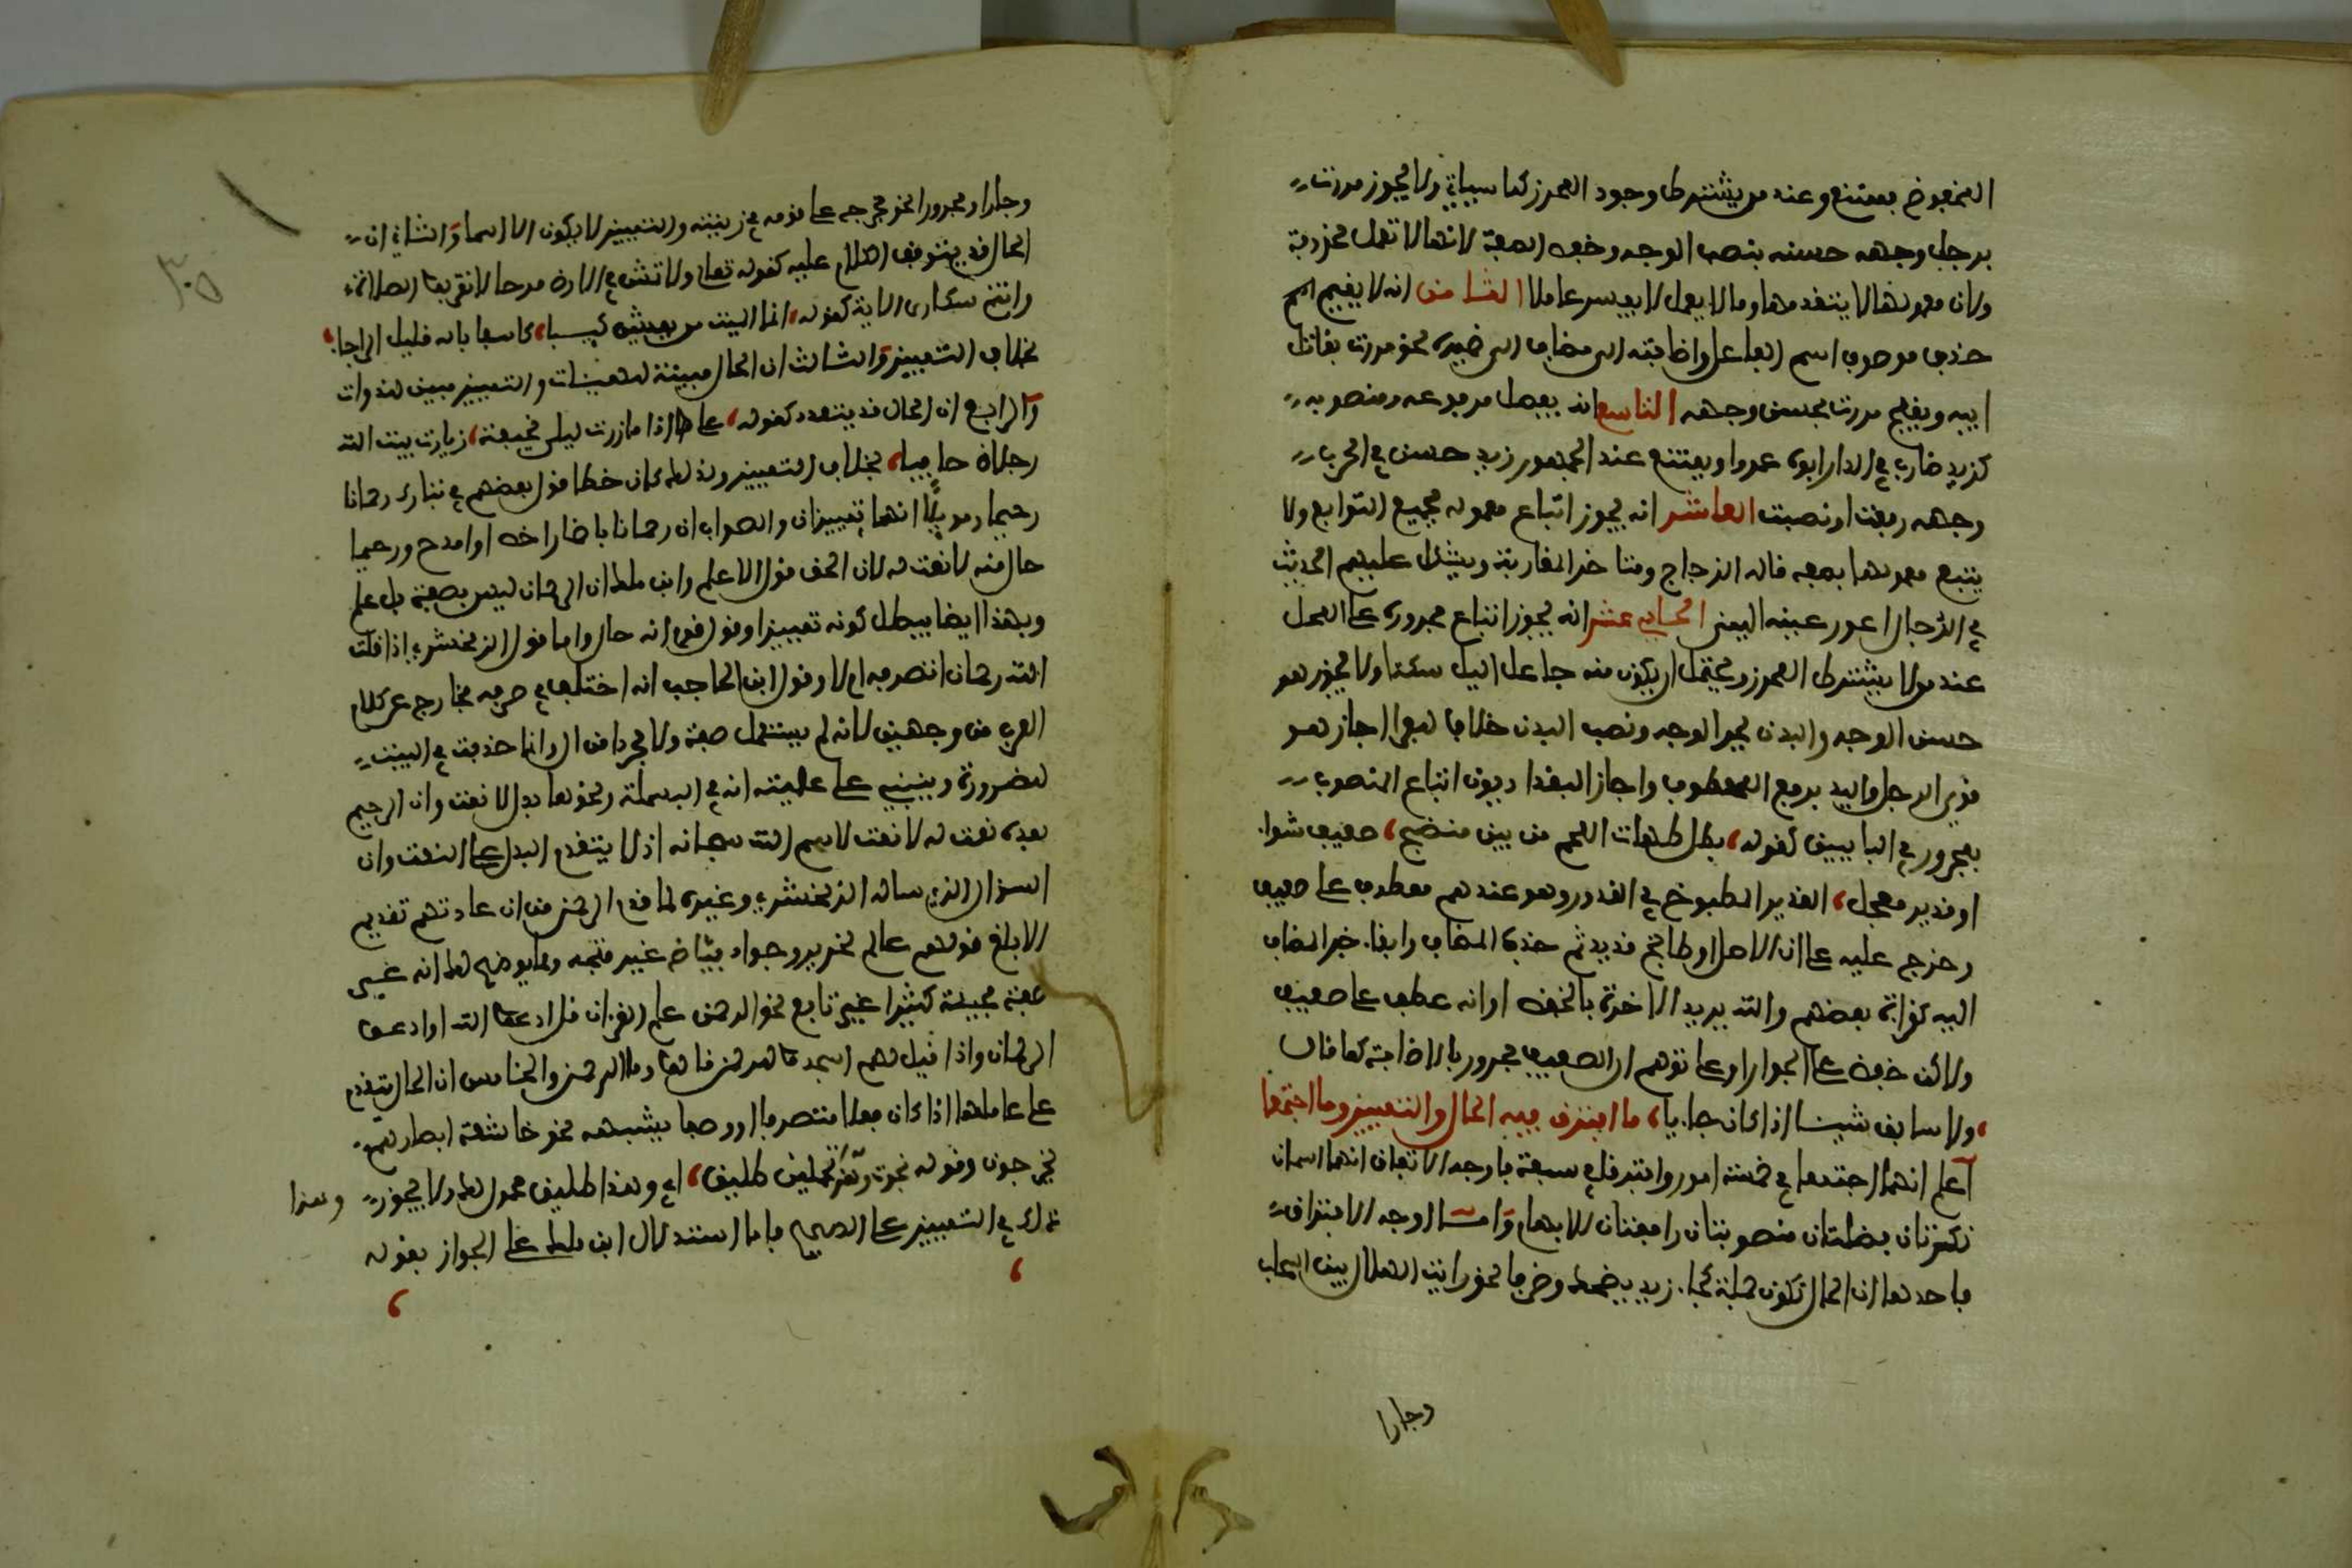 المخفوض ممتنع وعند من يشترط وجود المحرز كما سياتي ولا يجوز مررت
برجل وجهه حسنه بنصب الوجه وخفض الصفة لانها لا تعمل محذوفة
ولان معمولها لا يتقدمها وما لا يعمل لا يفسر عاملا الثامن انه لا يقبح
حذف موصوف اسم الفاعل واضافته الى مضاف الى ضميره نحو مررت بقاتل
ابيه ويقبح مررت بحسن وجهه التاسع انه يفصل مرفوعه ومنصوبه
كزيد ضارب في الدار ابوه عمروا ويمتنع عند الجمهور زيد حسن في الحرب
وجهه رفعت او نصبت العاشر انه يجوز اتباع معموله بجميع التوابع ولا
يتبع معمولها بصفة قاله الزجاج ومتاخر المغاربة ويشكل عليهم الحديث
في الدجال اعور عينه اليمنى الحادي عشر انه يجوز اتباع مجروره على المحل
عند من لا يشترط المحرز ويحتمل ان يكون منه جاعل اليل سكنا ولا يجوز هو
حسن الوجه والبدن بجر الوجه ونصب البدن خلافا للفرا اجاز هو
قوي الرجل واليد برفع المعطوف واجاز البغداديون اتباع المنصوب
بمجرور في البابين كقوله، بطل طهاة اللحم من بين منضج، صفيف شواء
او قدير معجل، القدير المطبوخ في القدر وهو عندهم معطوف على صفيف
وخرج عليه على ان الاصل او طابخ قدير ثم حذف المضاف وابقا جر المضاف
اليه كقراة بعضهم والله يريد الاخرة بالخفض او انه عطف على صفيف
ولاكن خفض على الجوار او على توهم ان الصفيف مجرور بالاضافة كما قال
،ولا سابق شيئا اذا كان جايا، ما افترق فيه الحال والتمييز وما اجتمعا
اعلم انهما اجتمعا في خمسة امور وافترقا في سبعة فاوجه الاتفاق انهما اسمان
نكرتان فضلتان منصوبتان رافعتان للابهام واما اوجه الافتراق
فاحدها ان الحال تكون جملة كجا زيد يضحك وظرفا نحو رايت الهلال بين السحاب
وجارا
وجارا ومجرورا نحو فخرج على قومه في زينته والتمييز لا يكون الا اسما والثاني ان
الحال قد يتوقف الكلام عليه كقوله تعالى ولا تمش في الارض مرحا لا تقربوا الصلاة
وانتم سكارى الاية كقوله، انما الميت من يعيش كيبا، كاسفا باله قليل الرجا،
بخلاف التمييز والثالث ان الحال مبينة للهيئات والتمييز مبين للذوات
والرابع ان الحال قد يتعدد كقوله، على اذا ما زرت ليلى بخفية، زيارة بيت الله
رجلان حافيا، بخلاف التمييز ولذلك كان خطا قول بعضهم في تبارك رحمانا
رحيما وموئلا انهما تمييزان والصواب ان رحمانا باضمار اخص او امدح ورحيما
حال منه لا نعت له لان الحق قول الاعلم وابن ملك ان الرحمان ليس بصفة بل علم
وبهذا ايضا يبطل كونه تمييزا وقول قوم انه حال واما قول الزمخشري اذا قلت
الله رحمان اتصرفه ام لا وقول ابن الحاجب انه اختلف في صرفه فخارج عن كلام
العرب من وجهين لانه لم يستعمل صفة ولا مجردا من ال وانما حذفت في البيت
للضرورة وينبني على علميته انه في البسملة ونحوها بدل لا نعت وان الرحيم
بعده نعت له لا نعت لاسم الله سبحانه اذ لا يتقدم البدل على النعت وان
السؤال الذي ساله الزمخشري وغيره لما قدم الرحمن من ان عادتهم تقديم
الابلغ قولهم عالم نحرير وجواد فياض غير متجه ومما يوضح لك انه غير
صفة مجيئه كثيرا غير تابع نحو الرحمن علم القران قل ادعوا الله او ادعوا
الرحمان واذا قيل لهم اسجدوا للرحمن قالوا وما الرحمن والخامس ان الحال تتقدم
على عاملها اذا كان فعلا متصرفا او وصفا يشبهه نحو خاشعة ابصارهم
يخرجون وقوله نجوت وهذا تحملين طليق، اي وهذا طليق محمول لك ولا يجوز
ذلك في التمييز على الصحيح فاما استدلال ابن ملك على الجواز بقوله
وهذا